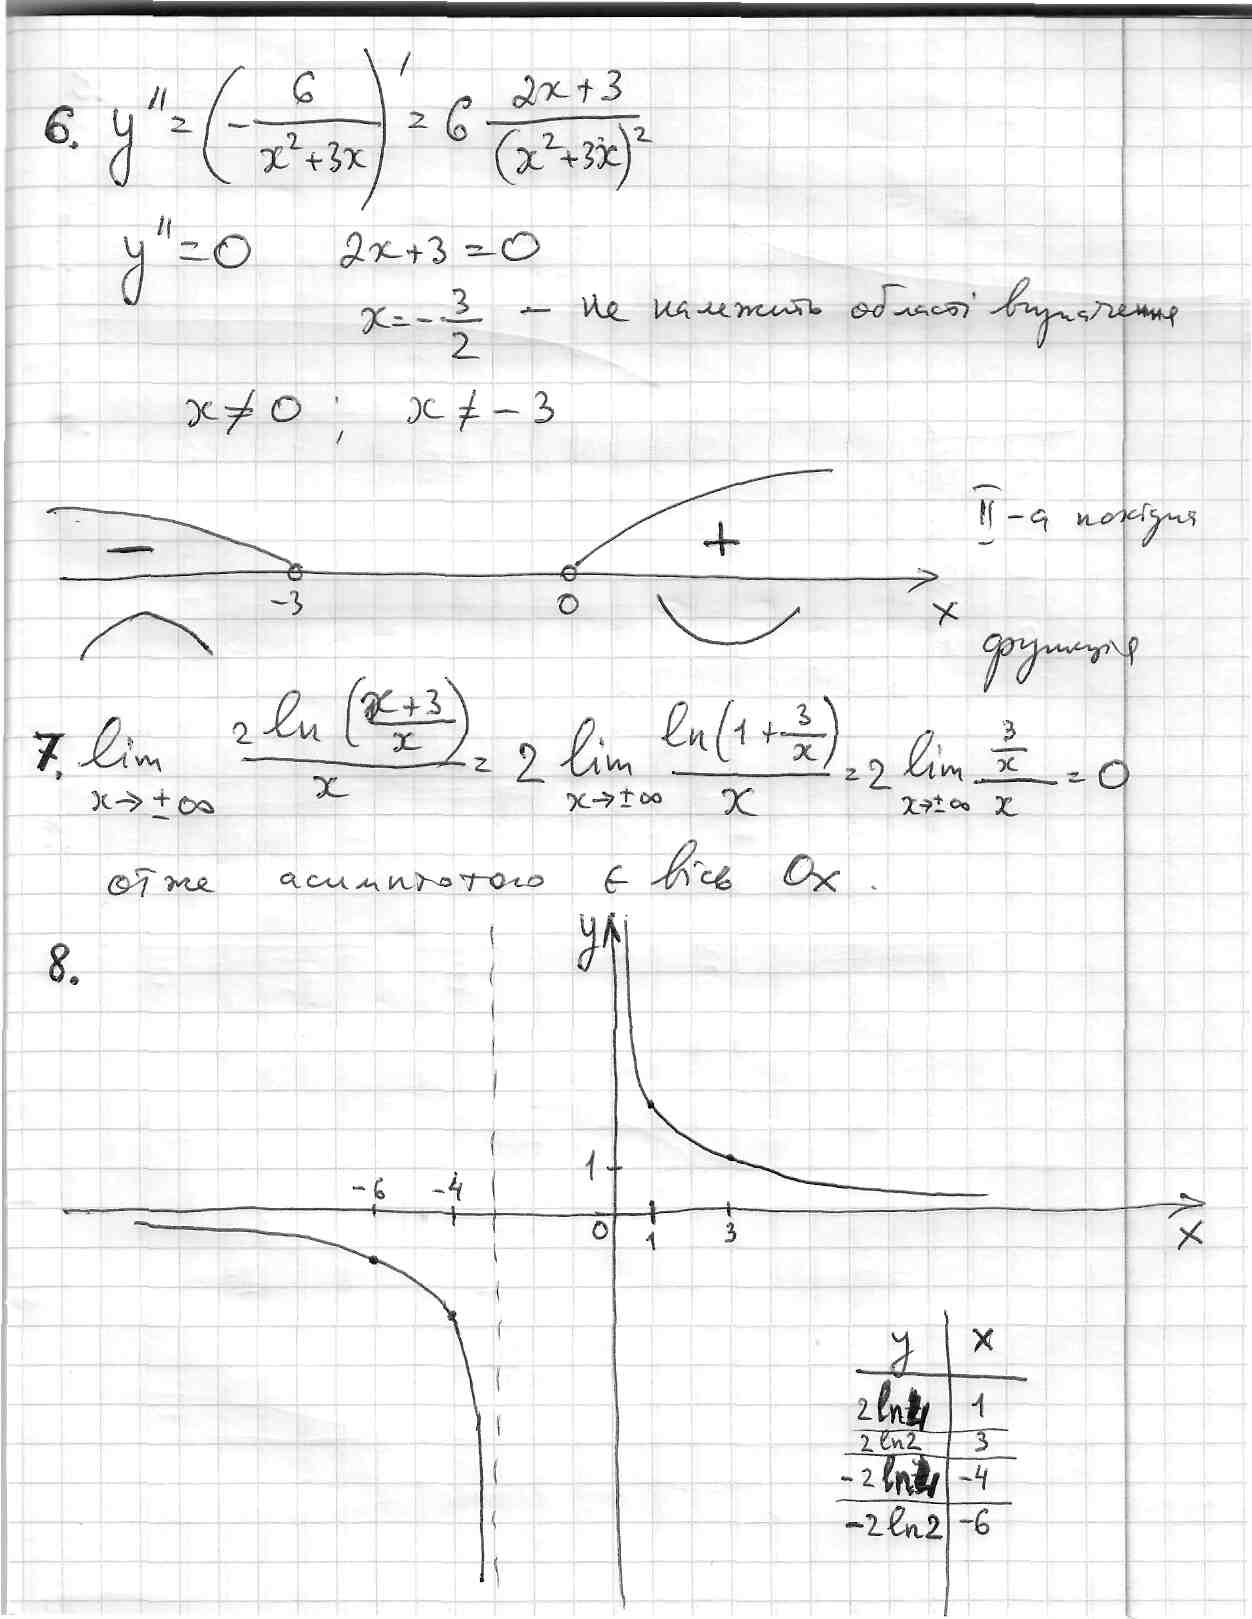 6. y'' = (-6/(x²+3x))' = 6 (2x+3)/(x²+3x)²
y''=0 2x+3=0
x=-3/2 - не належить області визначення
x≠0; x≠-3
II-а похідна
- +
-3 0 x
функція
7. lim x→±∞ 2ln((x+3)/x)/x = 2 lim x→±∞ ln(1+3/x)/x = 2 lim x→±∞ (3/x)/x = 0
отже асимптотою є вісь Ox.
8. y
-6 -4 1
0 1 3 x
y x
2ln4 1
2ln2 3
-2ln4 -4
-2ln2 -6